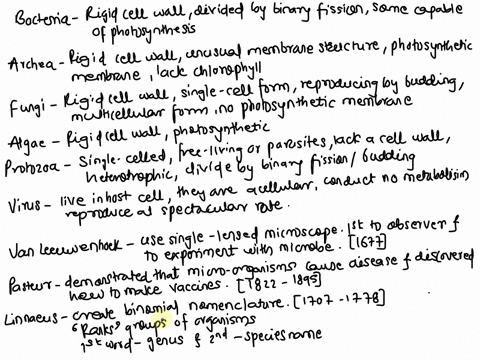 Bacteria - Rigid cell wall, divided by binary fission, some capable
of photosynthesis
Archea - Rigid cell wall, unusual membrane structure, photosynthetic
membrane, lack chlorophyll
Fungi - Rigid cell wall, single-cell form, reproducing by budding,
multicellular form, no photosynthetic membrane
Algae - Rigid cell wall, photosynthetic
Protozoa - Single-celled, free-living or parasites, lack a cell wall,
heterotrophic, divide by binary fission/budding
Virus - live in host cell, they are acellular, conduct no metabolism
reproduce as spectacular rate.
Van Leeuwenhoek - use single-lensed microscope. 1st to observer &
to experiment with microbe. [1677]
Pasteur - demonstrated that micro-organisms cause disease & discovered
how to make vaccines. [1822 - 1895]
Linnaeus - create binomial nomenclature. [1707 - 1778]
"Ranks" groups of organisms
1st word - genus & 2nd - species name